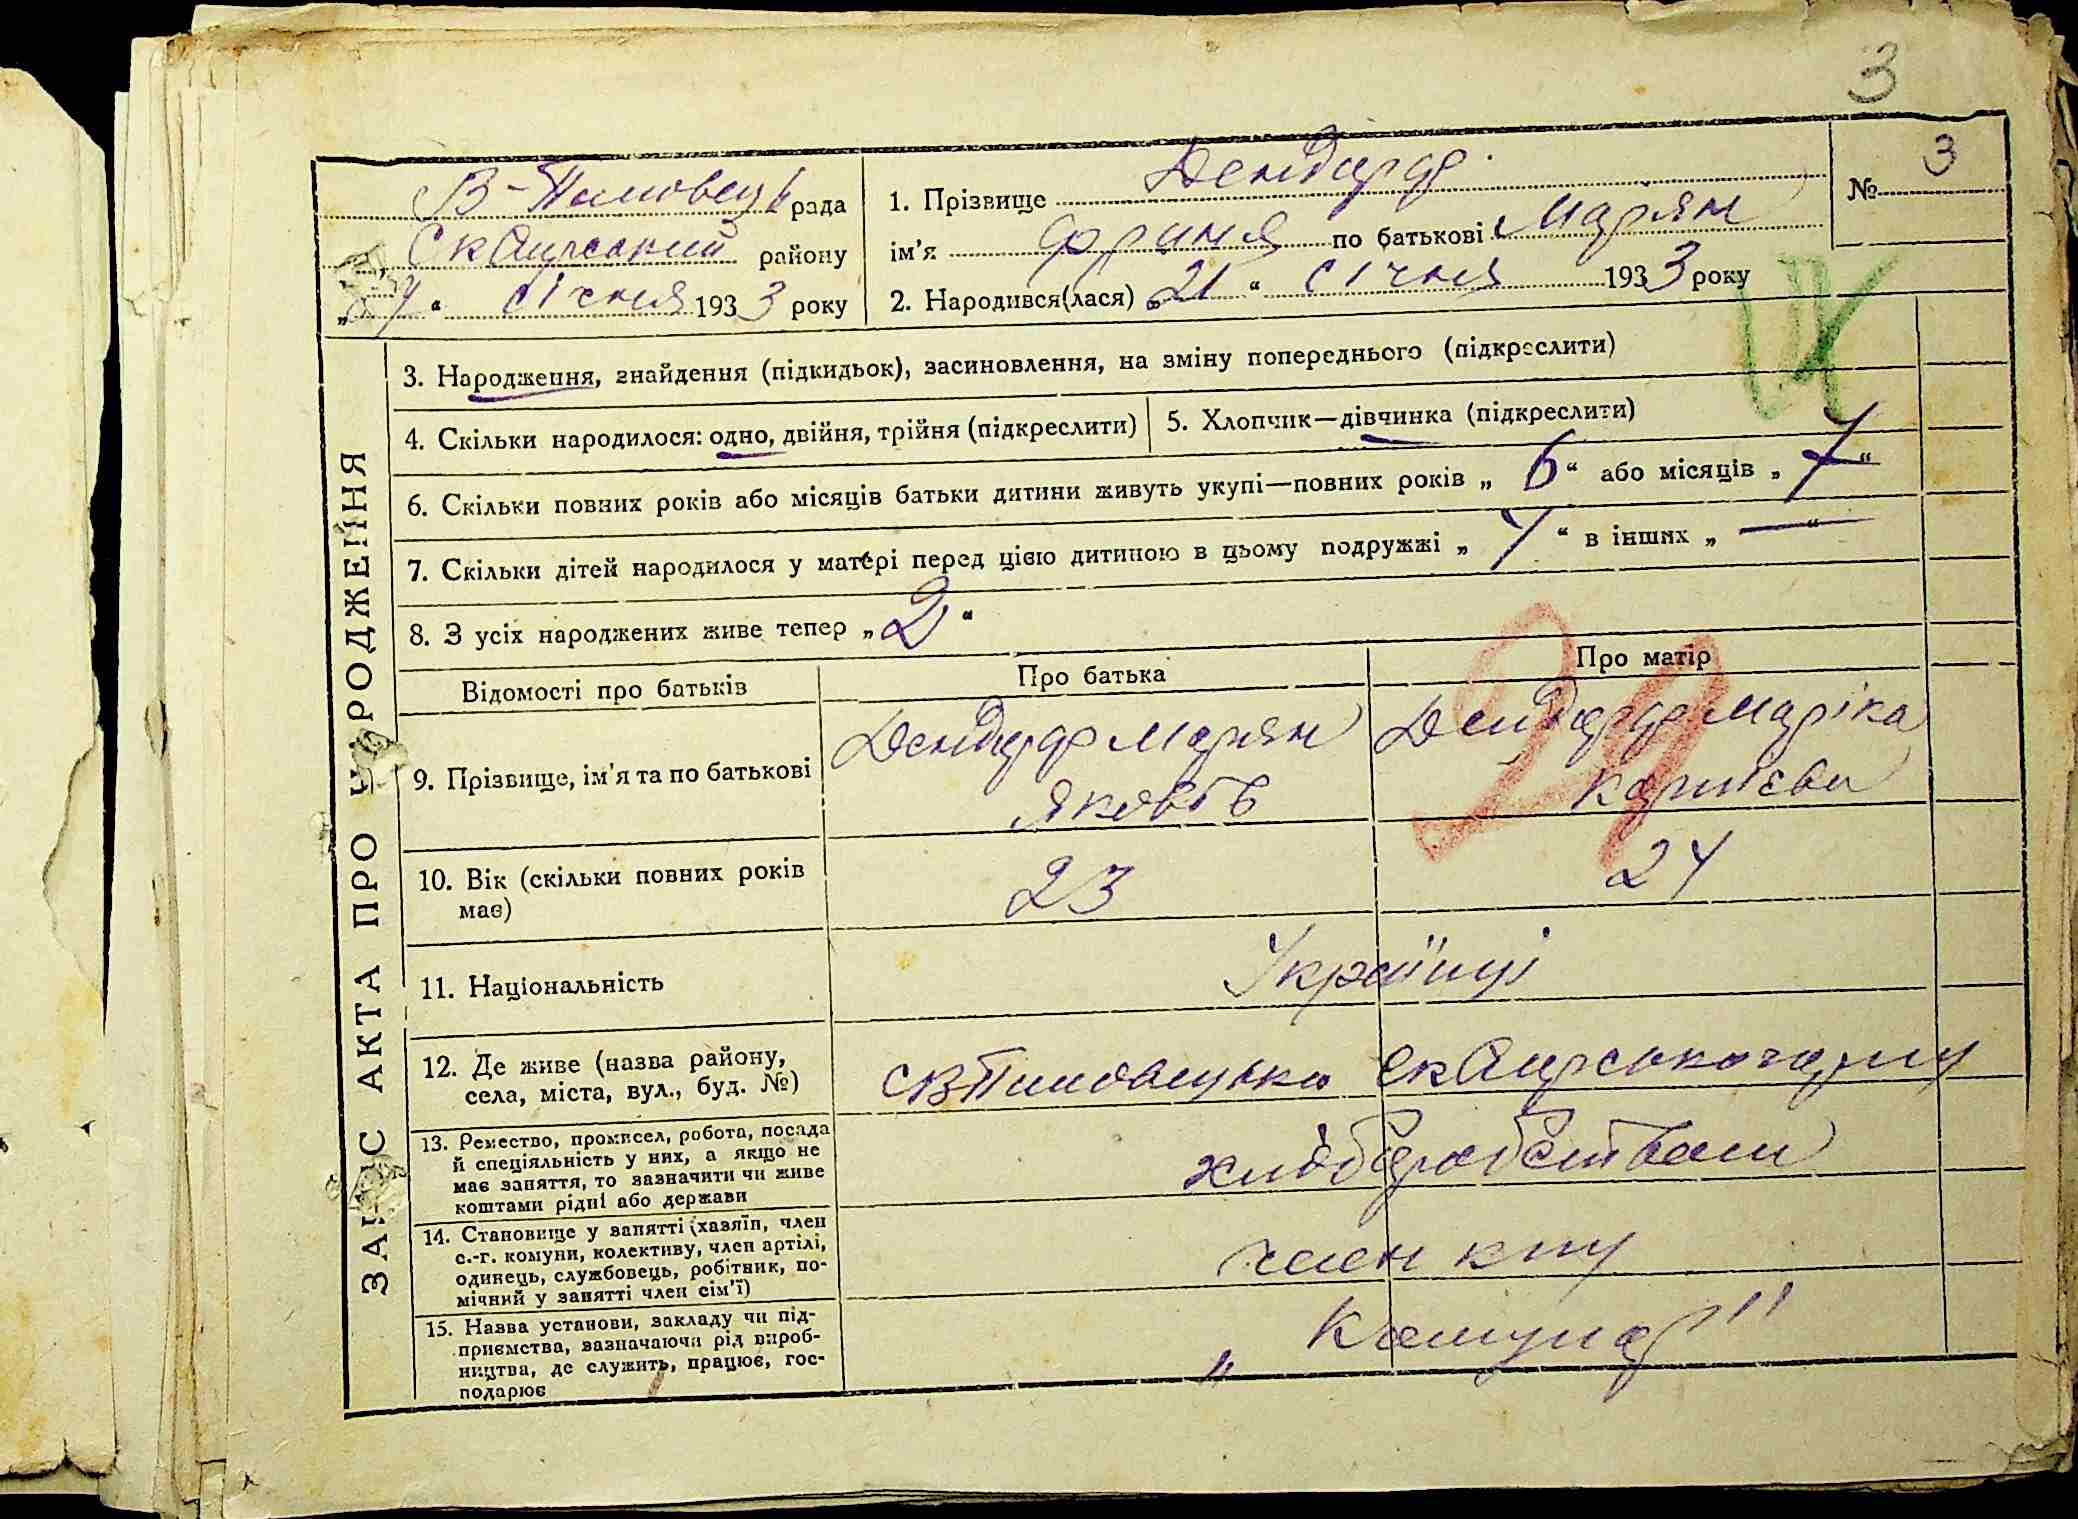 3
В-Половец рада
Сквирський району
„ “ січня 1933 року
1. Прізвище
ім'я Фриня по батькові Марян
2. Народився(лася) „21“ січня 1933 року
№ 3
ЗАПИС АКТА ПРО УРОДЖЕННЯ
3. Народження, знайдення (підкидьок), засиновлення, на зміну попереднього (підкреслити)
4. Скільки народилося: одно, двійня, трійня (підкреслити)
5. Хлопчик—дівчинка (підкреслити)
6. Скільки повних років або місяців батьки дитини живуть укупі—повних років „6“ або місяців „ “
7. Скільки дітей народилося у матері перед цією дитиною в цьому подружжі „ “ в інших „—“
8. З усіх народжених живе тепер „2“
Відомості про батьків
Про батька
Про матір
9. Прізвище, ім'я та по батькові
Марян
Яковів
Маріка
24
10. Вік (скільки повних років
має)
23
24
11. Національність
Українці
12. Де живе (назва району,
села, міста, вул., буд. №)
Сквирського р-ну
13. Ремество, промисел, робота, посада
й спеціяльність у них, а якщо не
має заняття, то зазначити чи живе
коштами рідні або держави
хліборобством
14. Становище у занятті (хазяїн, член
с.-г. комуни, колективу, член артілі,
одинець, службовець, робітник, по-
мічний у занятті член сім'ї)
член
15. Назва установи, закладу чи під-
приємства, зазначаючи рід вироб-
ництва, де служить, працює, гос-
подарює
„Комунар"